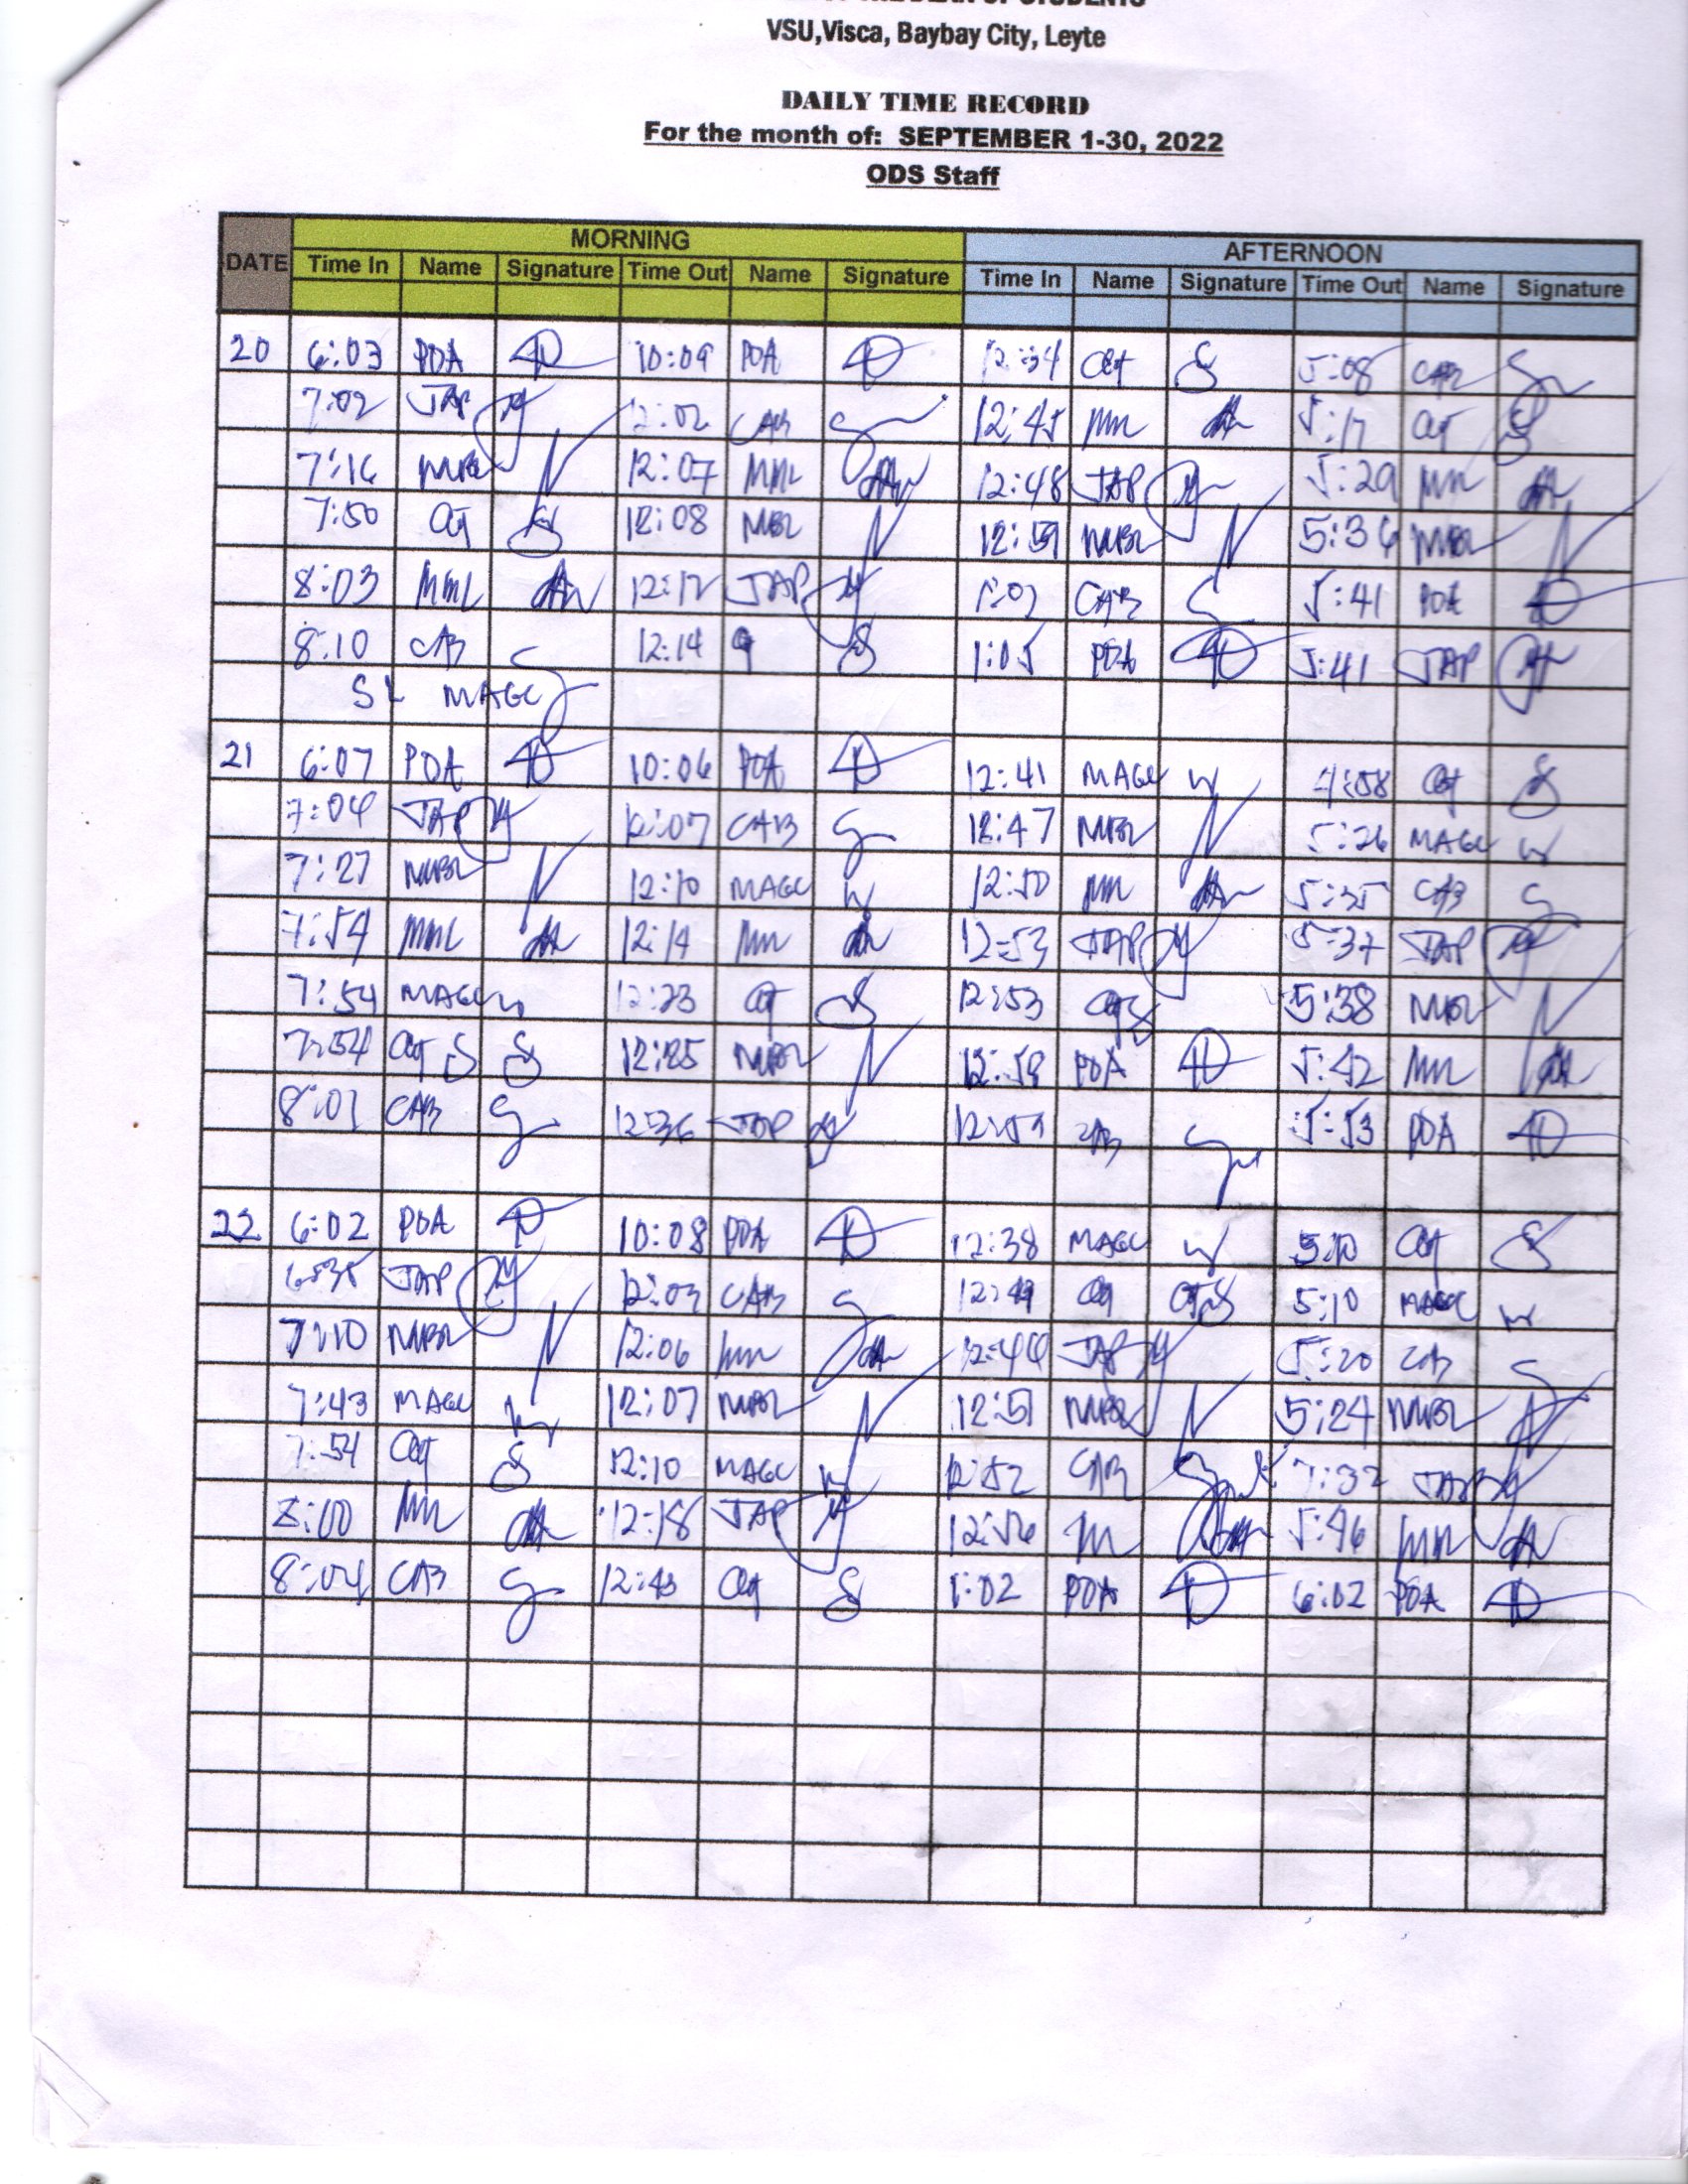 VSU,Visca, Baybay City, Leyte
DAILY TIME RECORD
For the month of: SEPTEMBER 1-30, 2022
ODS Staff
DATE MORNING AFTERNOON
Time In Name Signature Time Out Name Signature Time In Name Signature Time Out Name Signature
20 6:03 POA 10:09 POA 12:34 5:08 CAB
7:02 JAP 12:02 CAB 12:45 5:17
7:16 MBL 12:07 MML 12:48 JAP 5:29
7:50 12:08 MBL 12:59 MBL 5:36 MBL
8:03 MML 12:12 JAP CAB 5:41 POA
8:10 CAB 12:14 1:05 POA 5:41 JAP
SL MAGC
21 6:07 POA 10:06 POA 12:41 MAGC 4:58
7:04 JAP 12:07 CAB 12:47 MBL 5:26 MAGC
7:27 MBL 12:10 MAGC 12:50 5:35 CAB
7:54 MML 12:14 12:53 JAP 5:37 JAP
7:54 MAGC 12:23 12:53 5:38 MBL
7:54 12:25 MBL POA 5:42
8:01 CAB 12:36 JAP 12:59 CAB 5:53 POA
22 6:02 POA 10:08 POA 12:38 MAGC 5:10
JAP 12:03 CAB 5:10 MAGC
7:10 MBL 12:06 12:44 JAP 5:20 CAB
7:43 MAGC 12:07 MBL 12:51 MBL 5:24 MBL
7:54 12:10 MAGC 12:52 CAB JAP
8:00 12:18 JAP 12:56 5:46
8:04 CAB 12:43 1:02 POA 6:02 POA